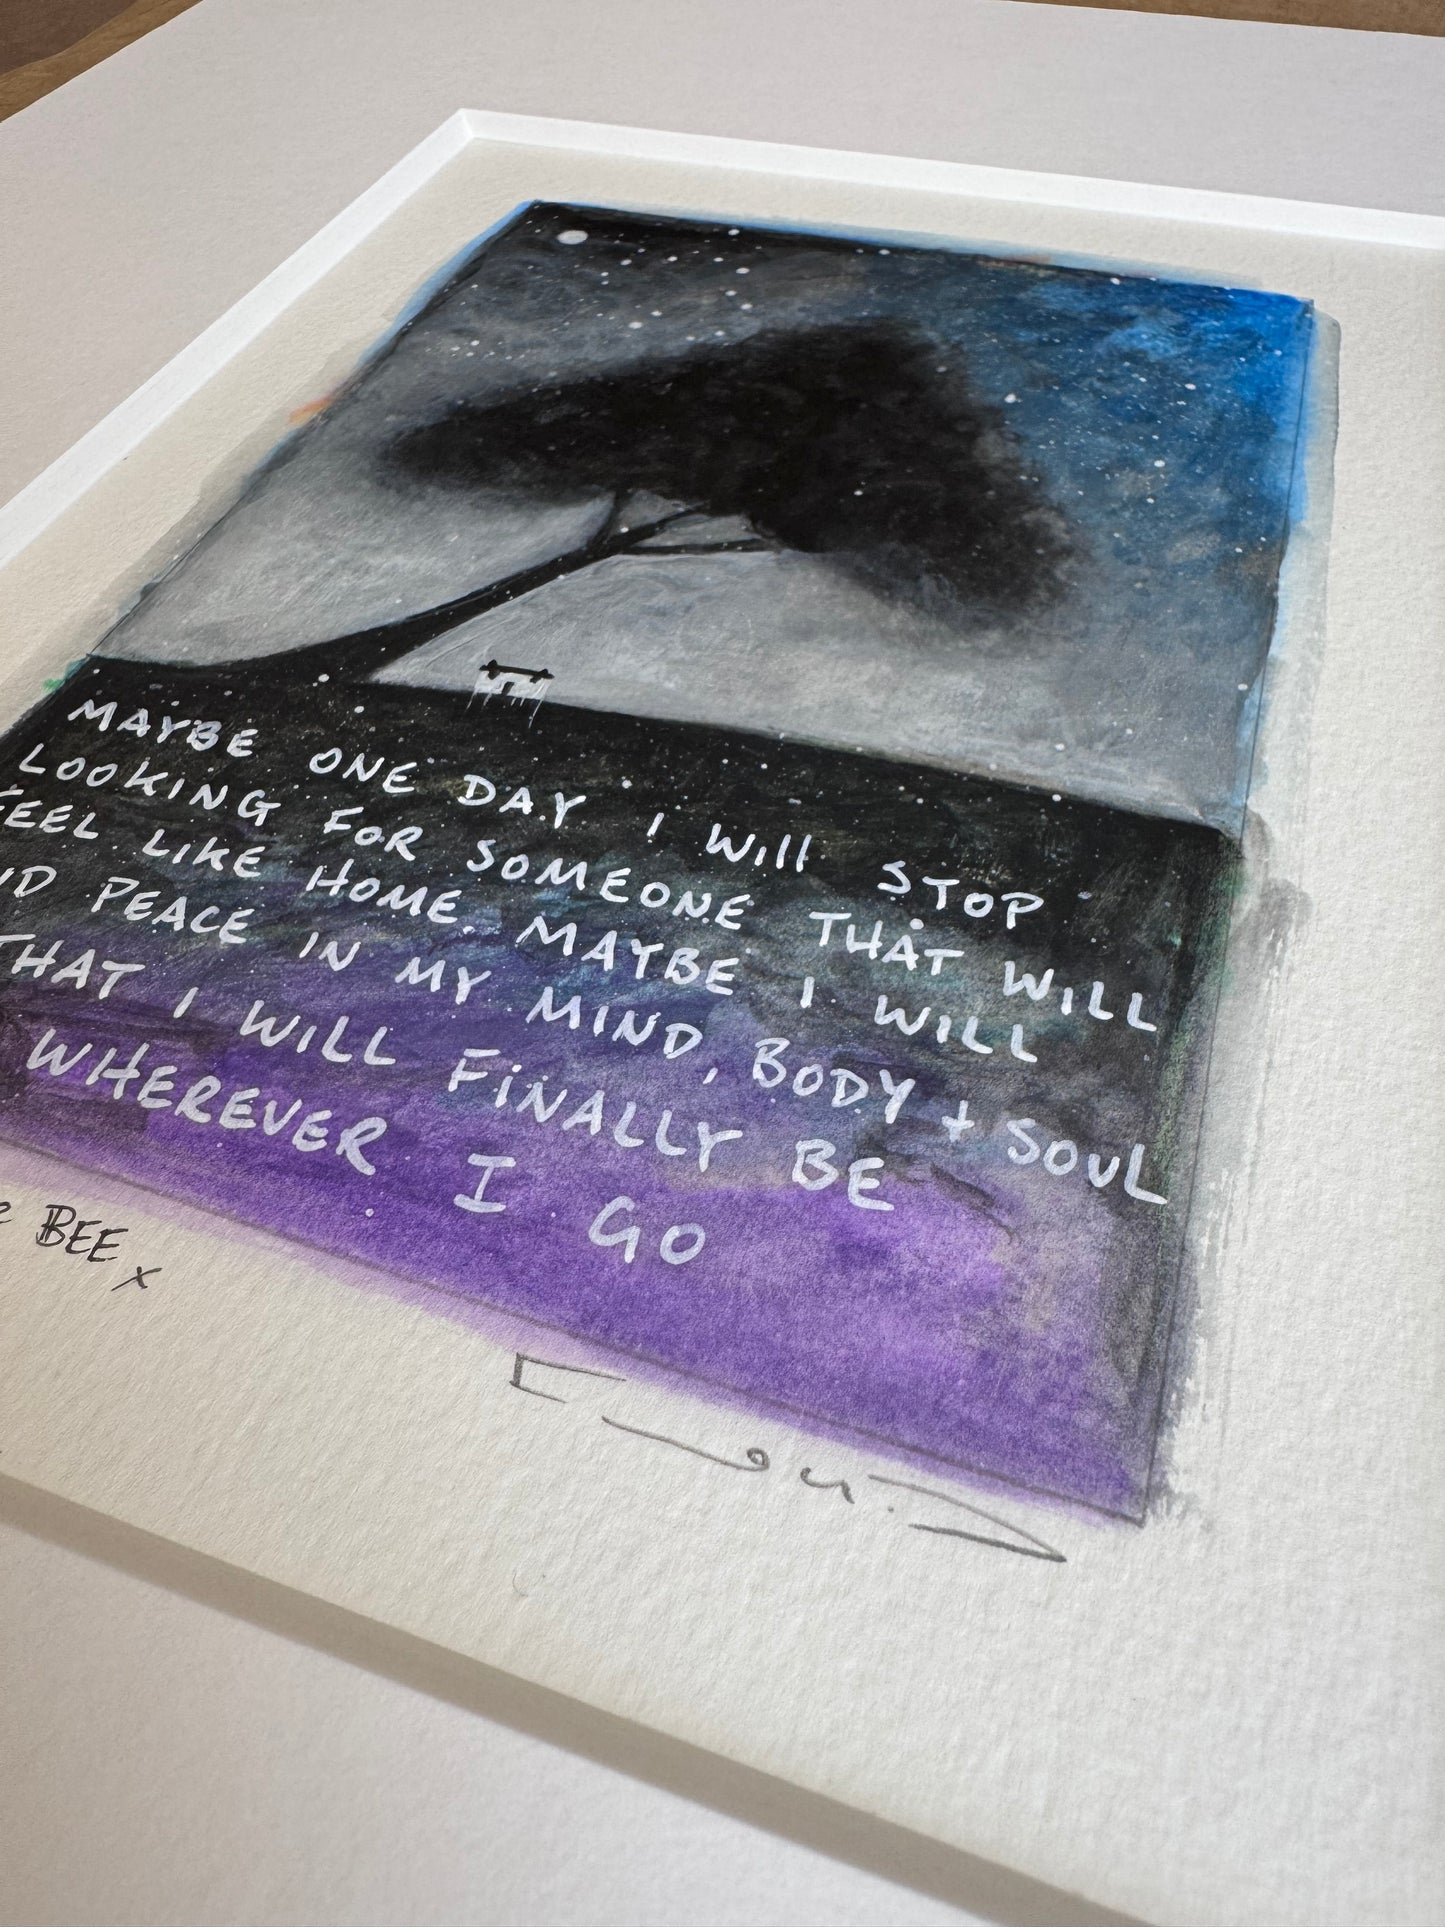 MAYBE ONE DAY I WILL STOP
LOOKING FOR SOMEONE THAT WILL
FEEL LIKE HOME. MAYBE I WILL
PEACE IN MY MIND, BODY + SOUL
THAT I WILL FINALLY BE
WHEREVER I GO
BEE x